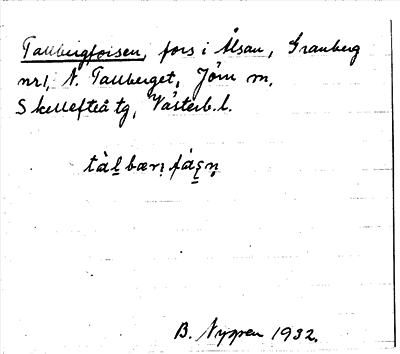 Tallbergforsen, fors i Ålsån, Granberg
nr 1, N. Tallberget, Jörn m,
Skellefteå tg, Västerb. l.
B. Nygren 1932.